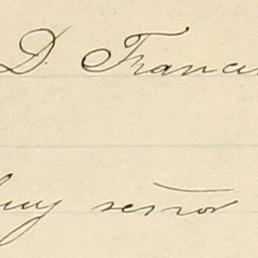 D. Franci
Muy señor